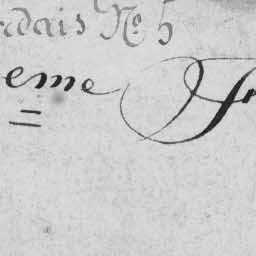 rdais No 5
eme